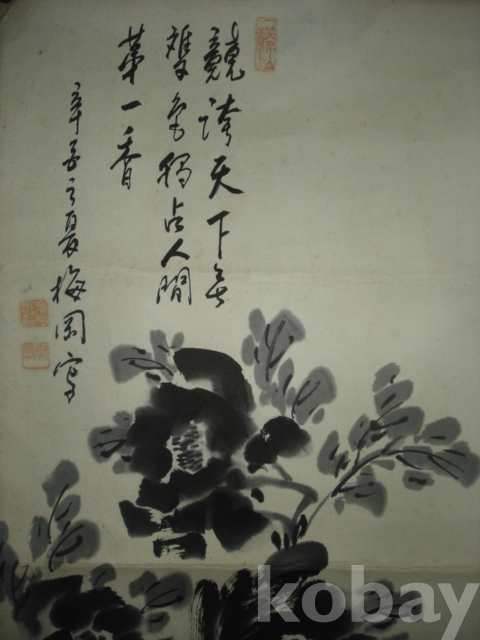 競誇天下無
雙色獨占人間
第一香
辛亥之夏梅園寫
kobay